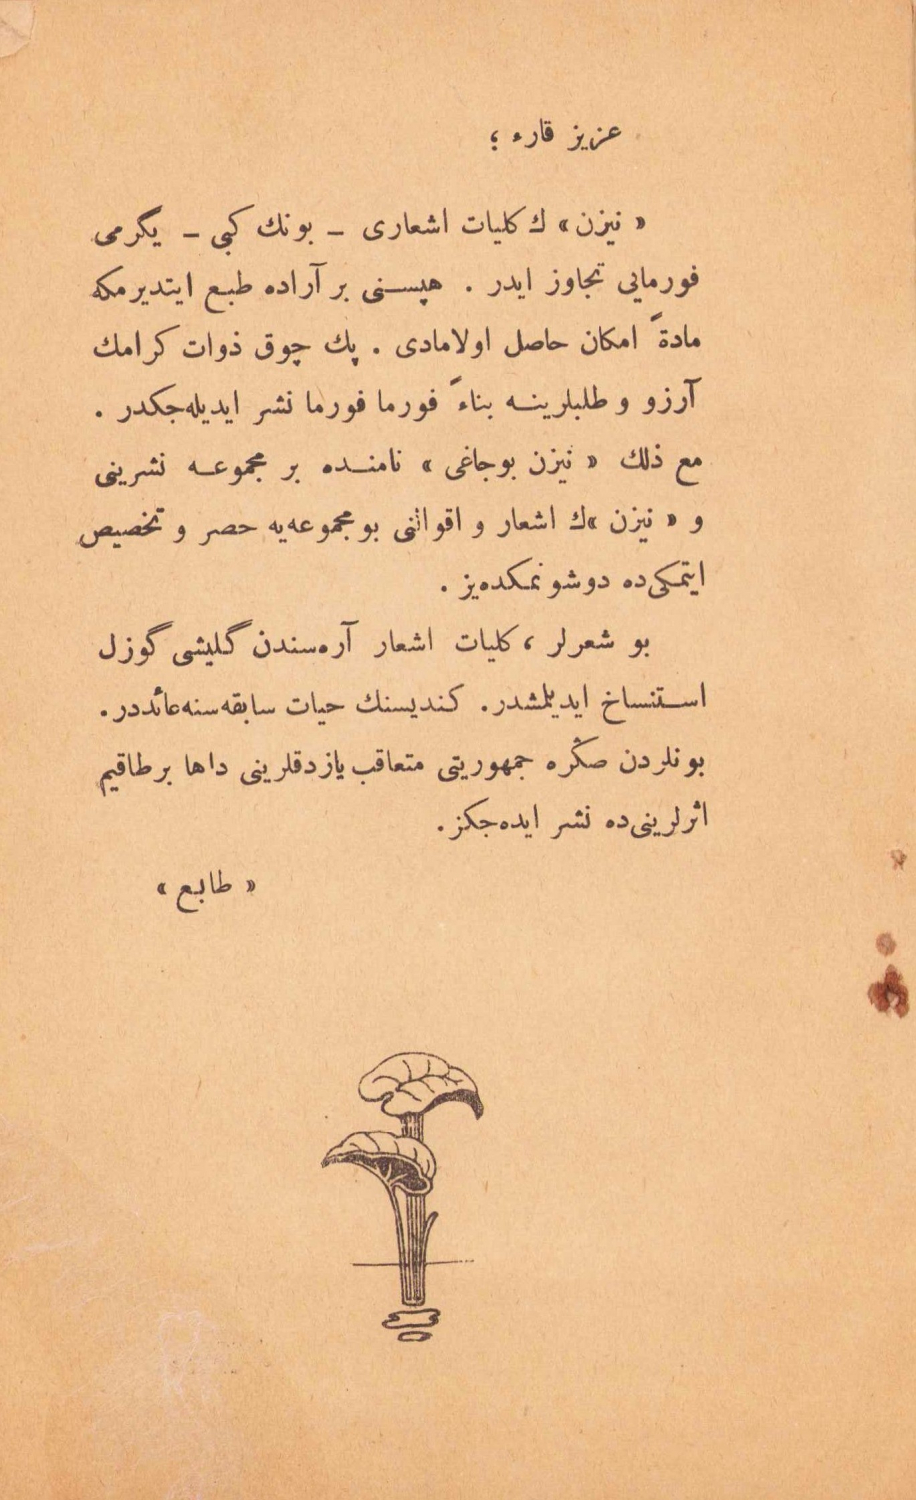 عزیز قارء ؛
« نیزن » ك كلیات اشعاری ـ بونك كبی ـ یگرمی
فورمایی تجاوز ایدر . هپسنی بر آراده طبع ایتدیرمكه
مادةً امكان حاصل اولامادی . پك چوق ذوات كرامك
آرزو و طلبلرینه بناءً فورما فورما نشر ایدیله‌جكدر .
مع ذلك « نیزن بوجاغی » نامنده بر مجموعه نشرینی
و « نیزن »ك اشعار و اقوالنی بو مجموعه‌یه حصر و تخصیص
ایتمكی‌ده دوشونمكده‌یز .
بو شعرلر ، كلیات اشعار آره‌سندن گلیشی گوزل
استنساخ ایدیلمشدر. كندیسنك حیات سابقه‌سنه عائددر.
بونلردن صڭره جمهوریتی متعاقب یازدقلرینی داها برطاقیم
اثرلرینی‌ده نشر ایده‌جكز.
« طابع »